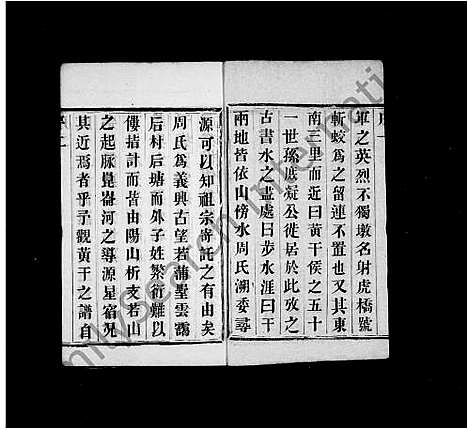 軍之英烈不獨墩名射虎橋號
斬蛟爲之留連不置也又其東
南三里而近曰黃干侯之五十
一世孫底凝公徙居於此攷之
古書水之盡處曰步水涯曰干
兩地皆依山傍水周氏溯委尋
源可以知祖宗寄託之有由矣
周氏爲義興古望若蕭墅雲
后村后塘而外子姓繁衍難以
僂指計而皆由陽山析支若山
之起脈崑崙河之導源星宿况
其近焉者乎予觀黃干之譜自